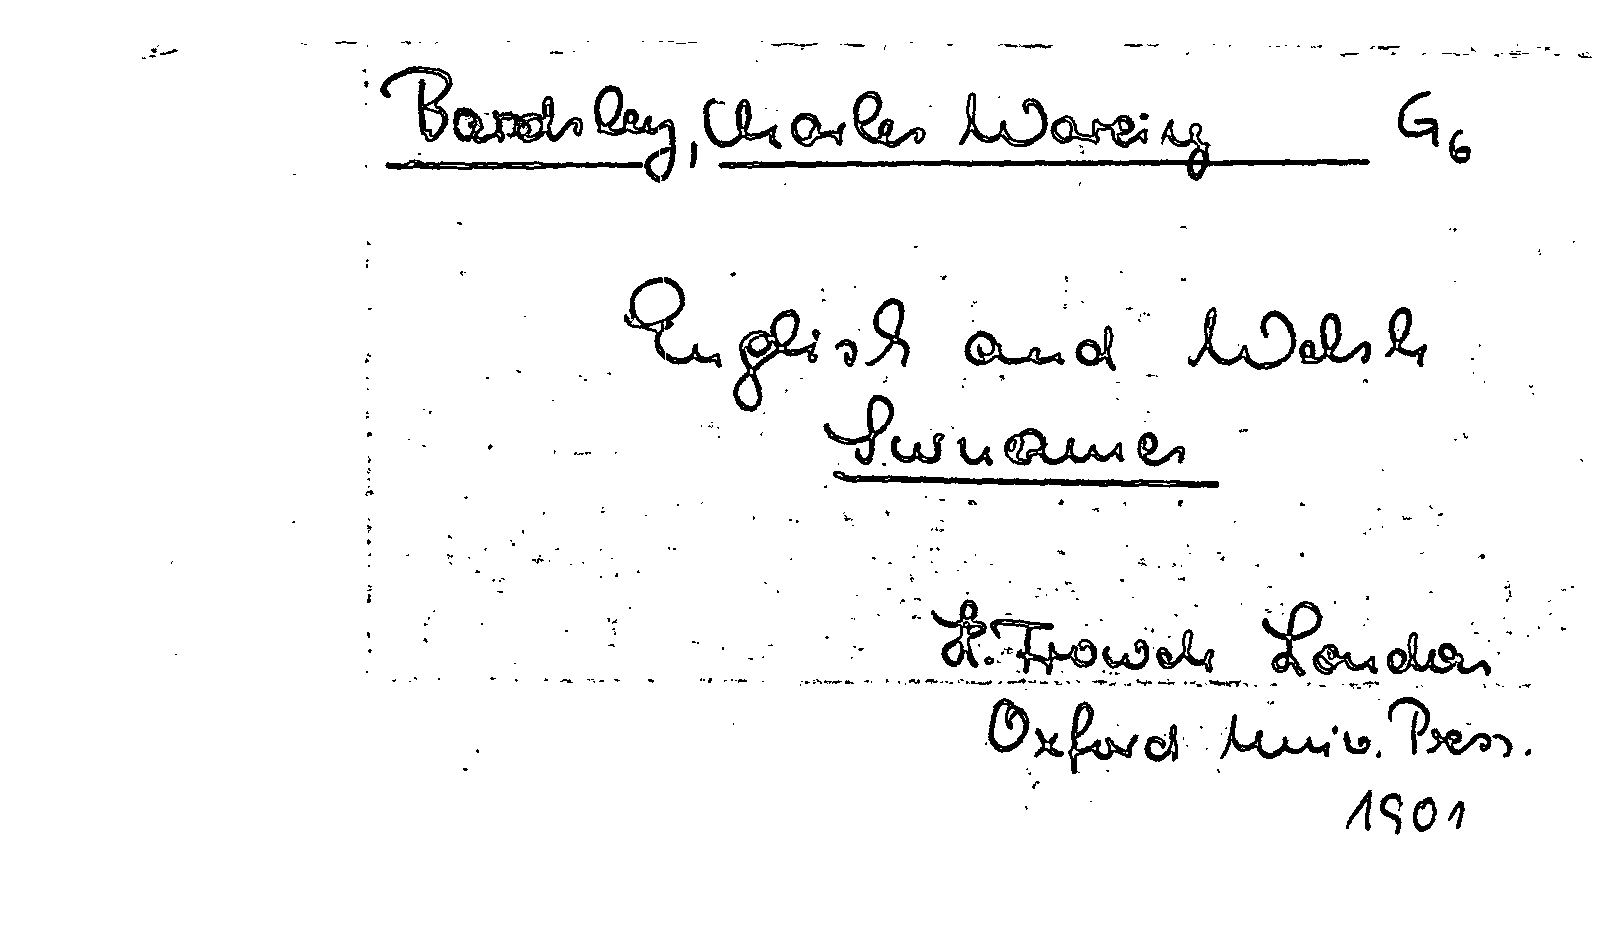 Bardsley, Charles Wareing G6
English and Welsh
Surnames
H. Frowde London
Oxford Univ. Press.
1901